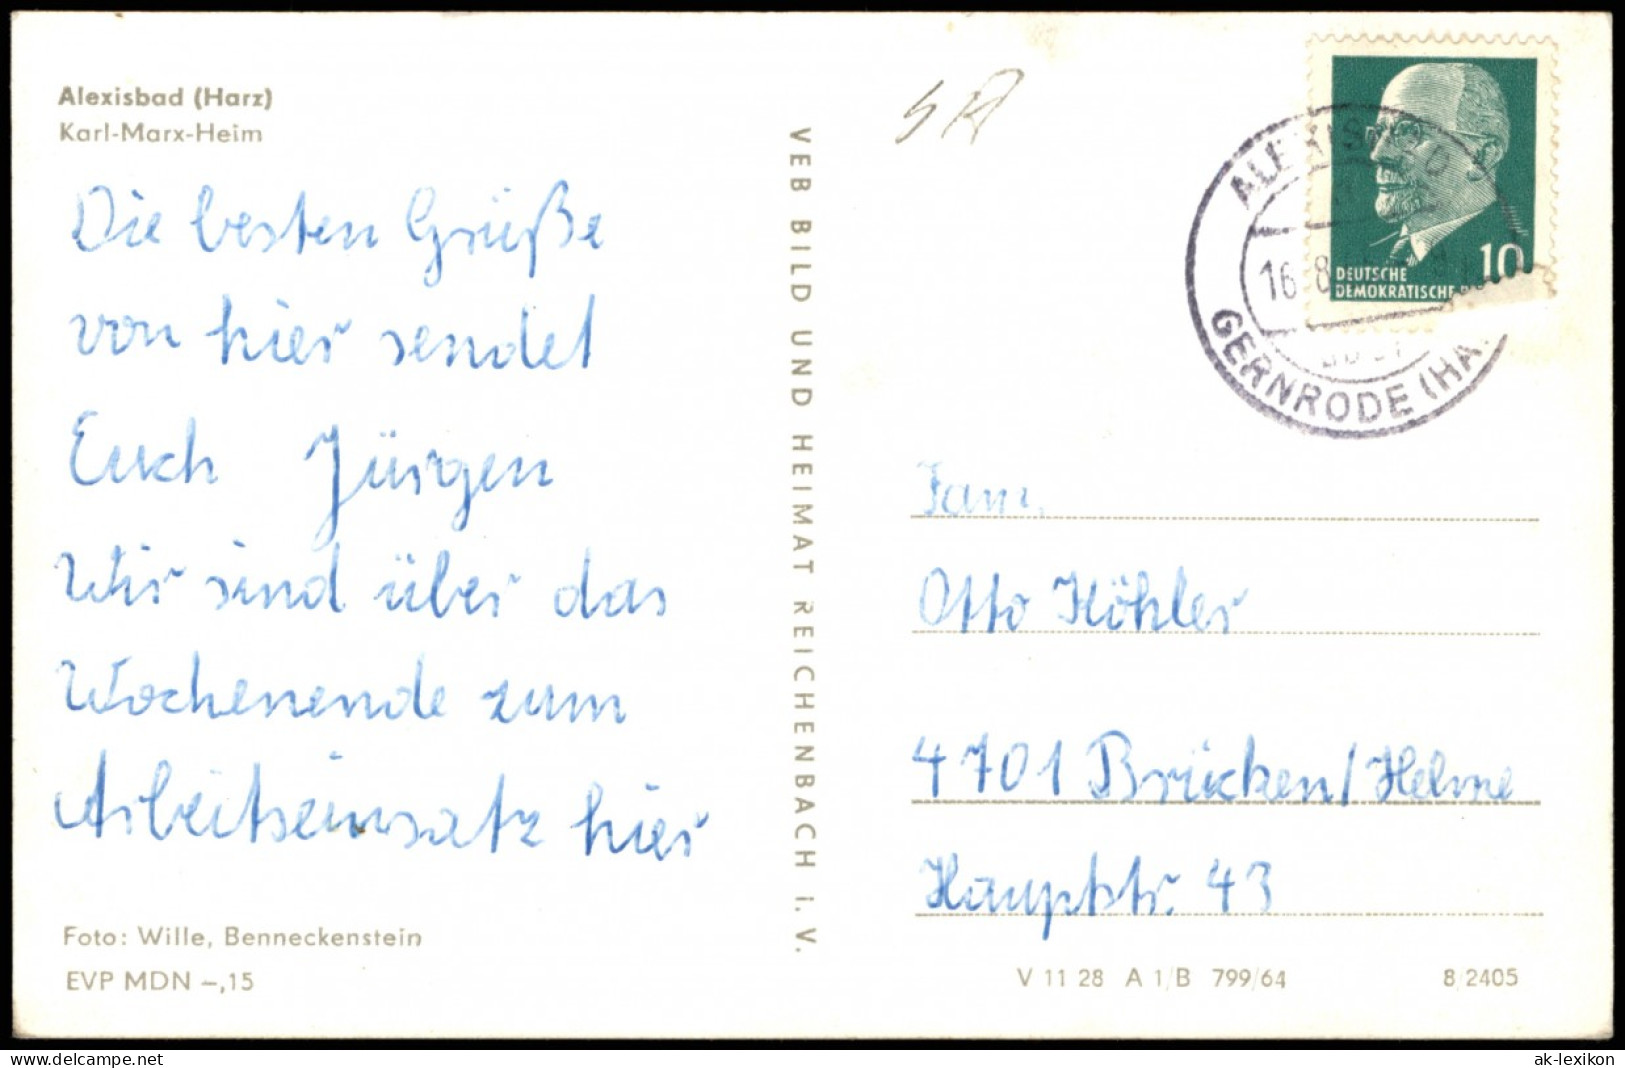 Alexisbad (Harz)
Karl-Marx-Heim
Die besten Grüße
von hier sendet
Euch Jürgen
Wir sind über das
Wochenende zum
Arbeitseinsatz hier
Foto: Wille, Benneckenstein
EVP MDN –,15
VEB BILD UND HEIMAT REICHENBACH i. V.
DEUTSCHE
DEMOKRATISCHE
10
16. 8.
GERNRODE (HA
Fam.
Otto Köhler
4701 Brücken/Helme
Hauptstr. 43
V 11 28 A 1/B 799/64
8/2405
www.delcampe.net
ak-lexikon